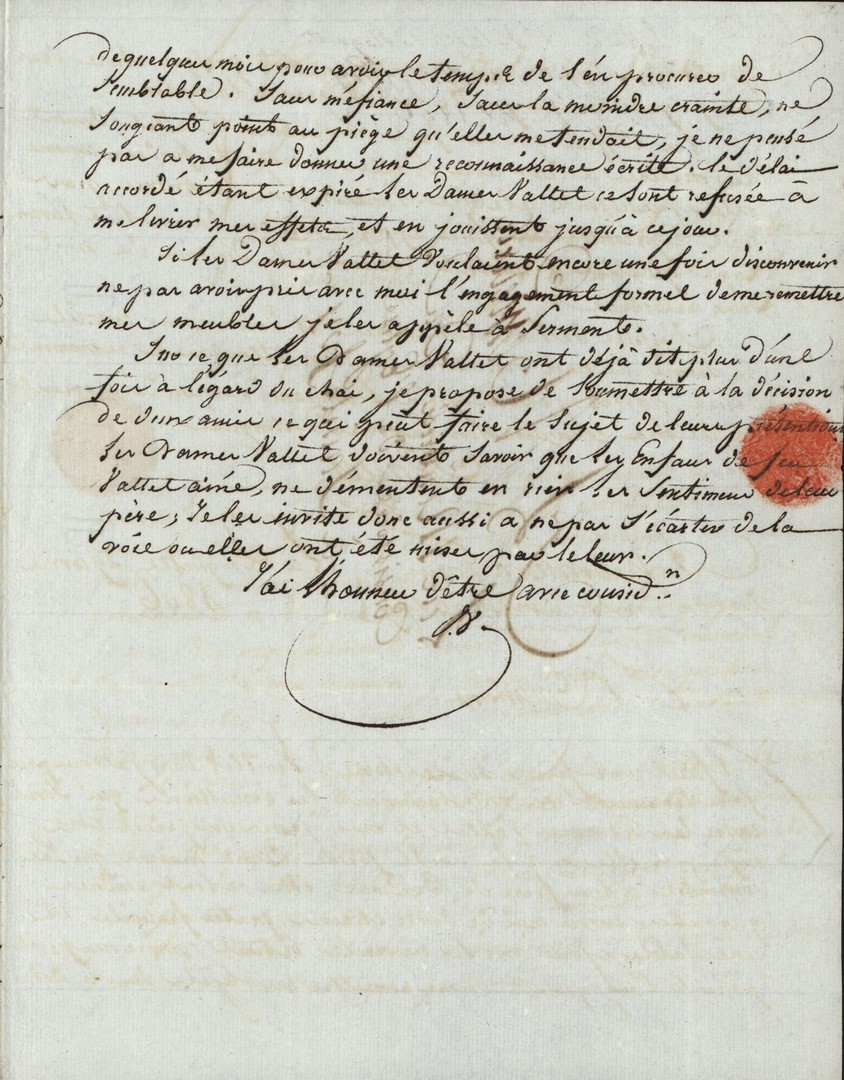 de quelques mois pour avoir le temps de s'en procurer de
semblable. Sans méfiance, sans la moindre crainte, ne
songeant point au piège qu'elles me tendait, je ne pensé
pas a me faire donner une reconnaissance écrite. le délai
accordé étant expiré les Dames Vallet ce sont refusée à
me livrer mes effets, et en jouissent jusqu'à ce jour.
Si les Dames Vallet voulaient encore une fois disconvenir
ne pas avoir pris avec moi l'engagement formel de me remettre
mes meubles je les appèle à serments.
Sur ce que les Dames Vallet ont déjà dit plus d'une
fois à l'égard du chai, je propose de soumettre à la décision
de deux amis ce qui peut faire le sujet de leurs prétentions
Les Dames Vallet doivent savoir que les Enfans de feu
Vallet ainé, ne démentent en rien les sentimens de leur
père; Je les invite donc aussi a ne pas s'écarter de la
voie ou elles ont été mises par le leur.
J'ai l'honneur d'être avec considn